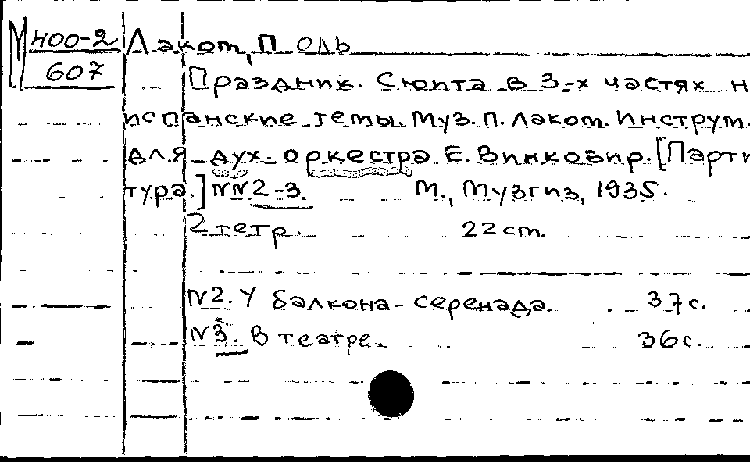 М 400-2
607
Лакот, Поль
Праздник. Сюита в 3-х частях н
испанские темы. Муз. П. Лакот. Инструм.
для дух. оркестра Е. Винковир. [Парти
тура.] №№2-3. М., Музгиз, 1935.
2 тетр. 22 cm.
№2. У балкона - серенада. 37 с.
№3. В театре. 36 с.